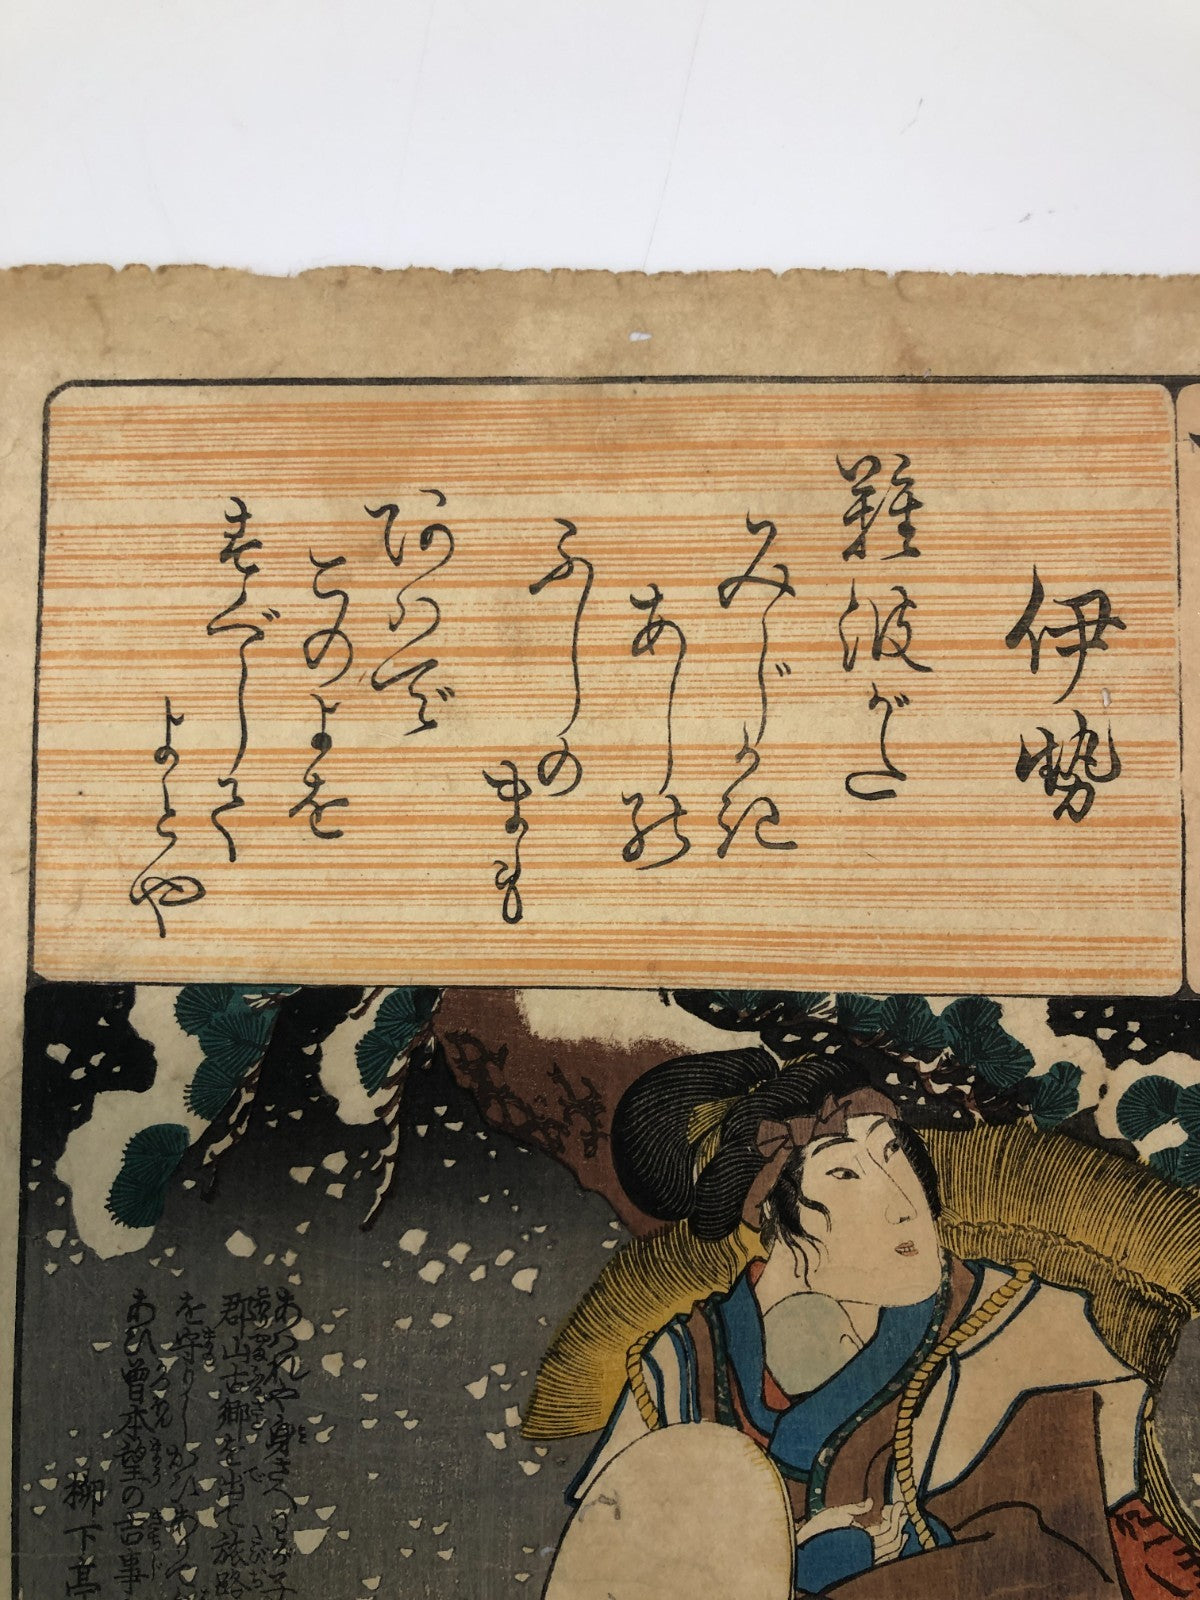 伊勢
難波がた
みじかき
あしの
ふしの
まも
あはで
このよを
すぐして
よとや
あはれや身さへ
郡山古郷を出て旅路
を守りし
あひ曽本望の吉事
柳下亭